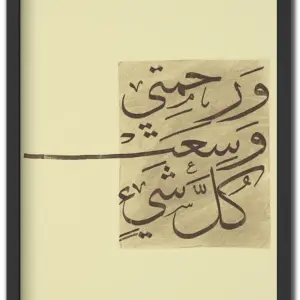 وَرَحمتي
وَسِعَت
كُلَّ شَيءٍ